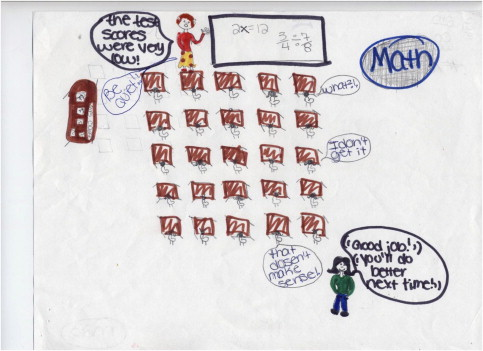 the test
scores
were very
low!
2x=12
3/4 ÷ 7/8
Math
Be
Quiet!
what?!
I don't
get it
that
dosen't
make
sense!
"Good job!"
"You'll do
better
next time!"